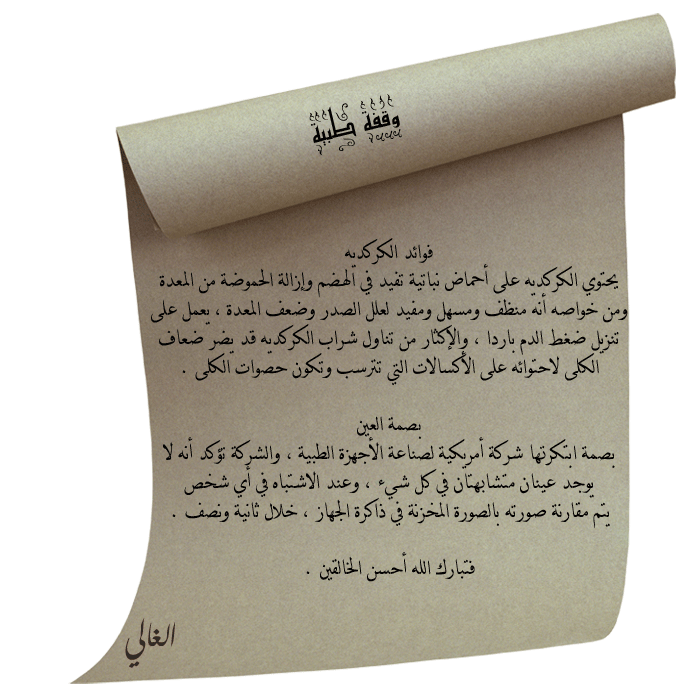 وقفة طبية
فوائد الكركديه
يحتوي الكركديه على أحماض نباتية تفيد في الهضم وإزالة الحموضة من المعدة
ومن خواصه أنه منظف ومسهل ومفيد لعلل الصدر وضعف المعدة ، يعمل على
تنزيل ضغط الدم باردا ، والإكثار من تناول شراب الكركديه قد يضر ضعاف
الكلى لاحتوائه على الأكسالات التي تترسب وتكون حصوات الكلى .
بصمة العين
بصمة ابتكرتها شركة أمريكية لصناعة الأجهزة الطبية ، والشركة تؤكد أنه لا
يوجد عينان متشابهتان في كل شيء ، وعند الاشتباه في أي شخص
يتم مقارنة صورته بالصورة المخزنة في ذاكرة الجهاز ، خلال ثانية ونصف .
فتبارك الله أحسن الخالقين .
الغالي